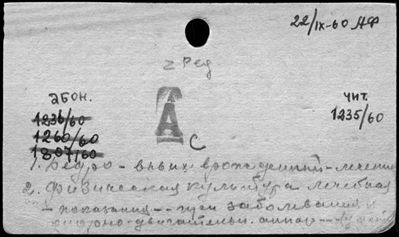 22/IX-60 АФ
2 Ред
абон.
1236/60
1260/60
1807/60
А
с
чит.
1235/60
1. Бедро - вывих врожденный - лечение
2. Физическая культура лечебная
- показания - при заболеваниях
опорно-двигательн. аппар